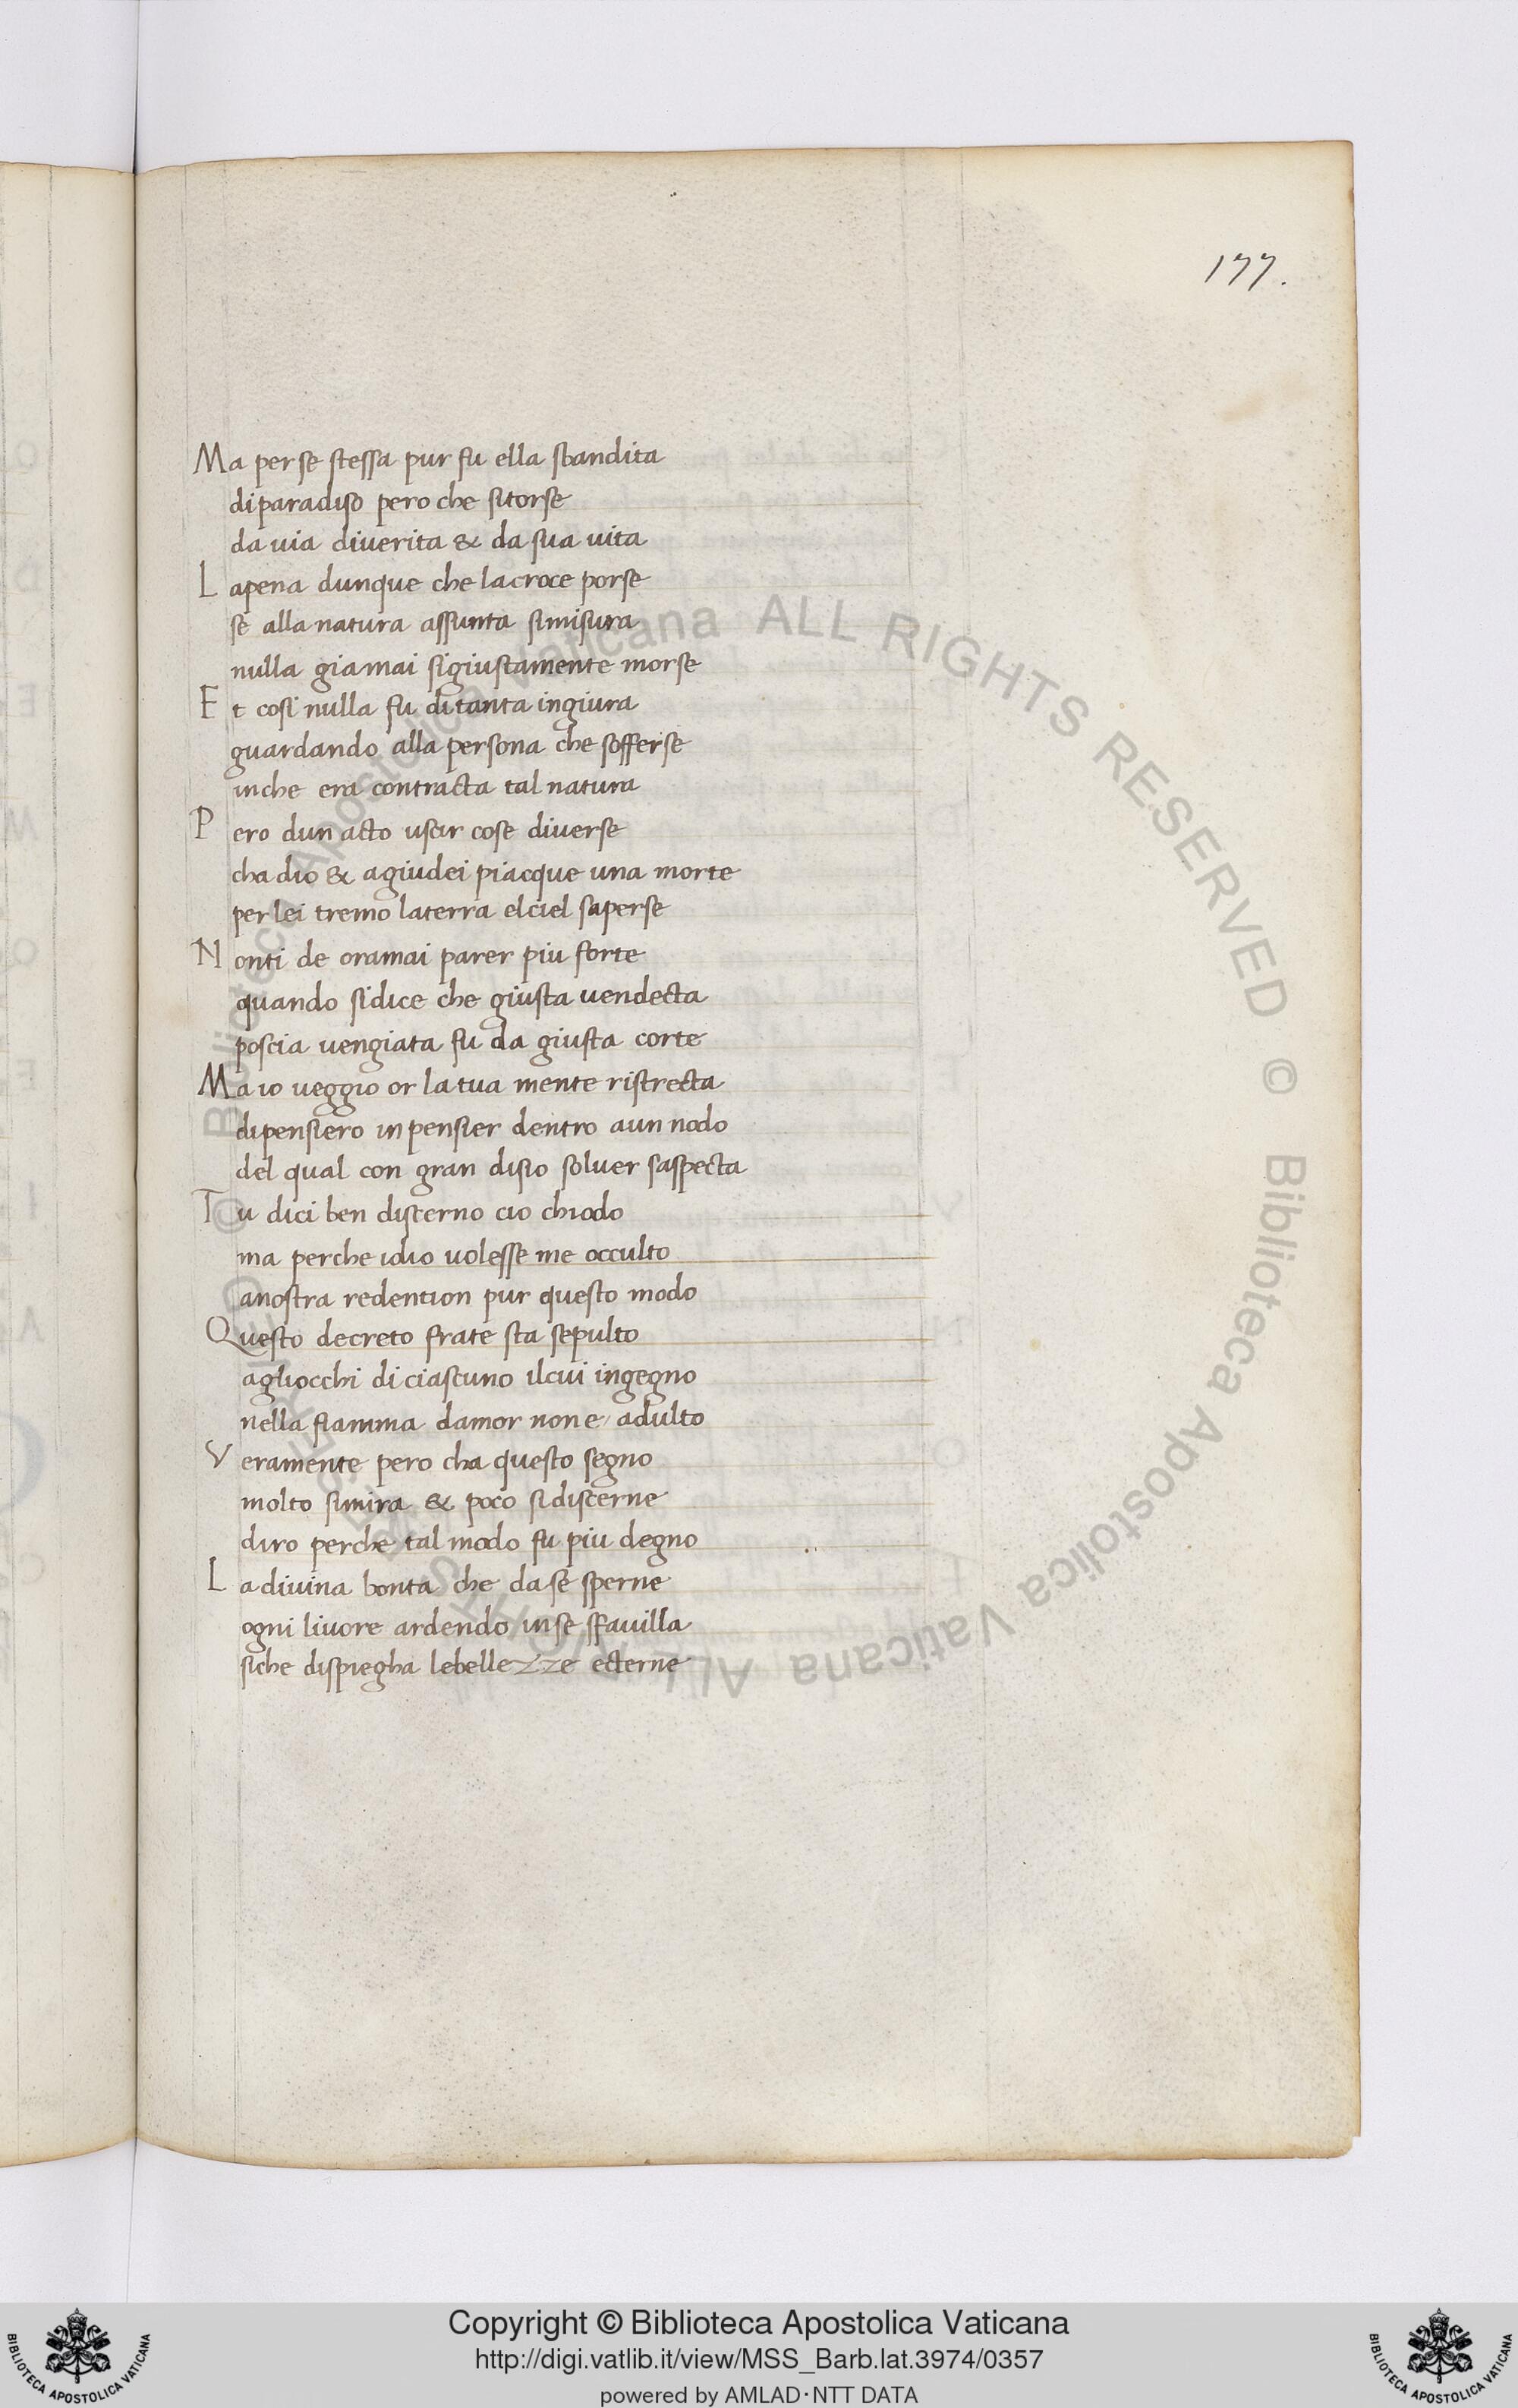 177.
Ma per se stessa pur fu ella sbandita
diparadiso pero che sitorse
da uia diuerita & da sua uita
Lapena dunque che lacroce porse
se alla natura assunta simisura
nulla giamai sigiustamente morse
Et cosi nulla fu ditanta ingiura
guardando alla persona che sofferse
inche era contracta tal natura
Pero dun acto uscir cose diuerse
cha dio & agiudei piacque una morte
per lei tremo laterra elciel saperse
Nonti de oramai parer piu forte
quando sidice che giusta uendecta
poscia uengiata fu da giusta corte
Ma io ueggio or la tua mente ristrecta
dipensiero in pensier dentro aun nodo
del qual con gran disio soluer saspecta
Tu dici ben discerno cio chiodo
ma perche idio uolesse me occulto
anostra redention pur questo modo
Questo decreto frate sta sepulto
agliocchi di ciascuno ilcui ingegno
nella fiamma damor none adulto
Veramente pero cha questo segno
molto simira & poco sidiscerne
diro perche tal modo fu piu degno
La diuina bonta che da se sperne
ogni liuore ardendo inse sfauilla
siche dispiegha lebellezze ecterne
Biblioteca Apostolica Vaticana ALL RIGHTS RESERVED ©
Copyright © Biblioteca Apostolica Vaticana
http://digi.vatlib.it/view/MSS_Barb.lat.3974/0357
powered by AMLAD·NTT DATA
BIBLIOTECA APOSTOLICA VATICANA
BIBLIOTECA APOSTOLICA VATICANA